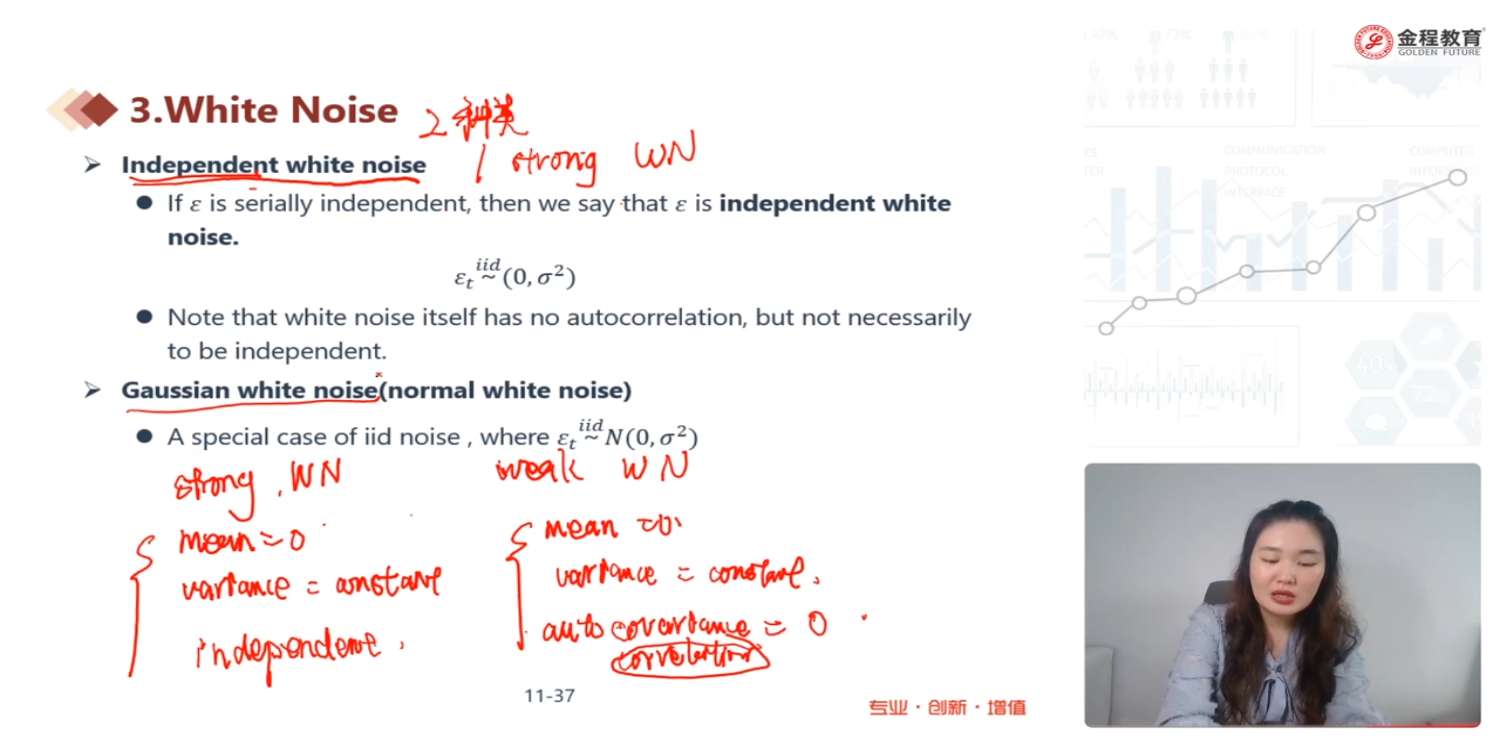 金程教育
GOLDEN FUTURE
3.White Noise 2种类
Independent white noise / strong WN
If ε is serially independent, then we say that ε is independent white
noise.
εt iid ~ (0, σ²)
Note that white noise itself has no autocorrelation, but not necessarily
to be independent.
Gaussian white noise(normal white noise)
A special case of iid noise , where εt iid ~ N(0, σ²)
strong . WN
mean = 0
variance = constant
independent .
weak WN
mean = 0
variance = constant .
autocovariance = 0
correlation
11-37
专业 · 创新 · 增值
COMMUNICATION
PROTOCOL
INTERFACE